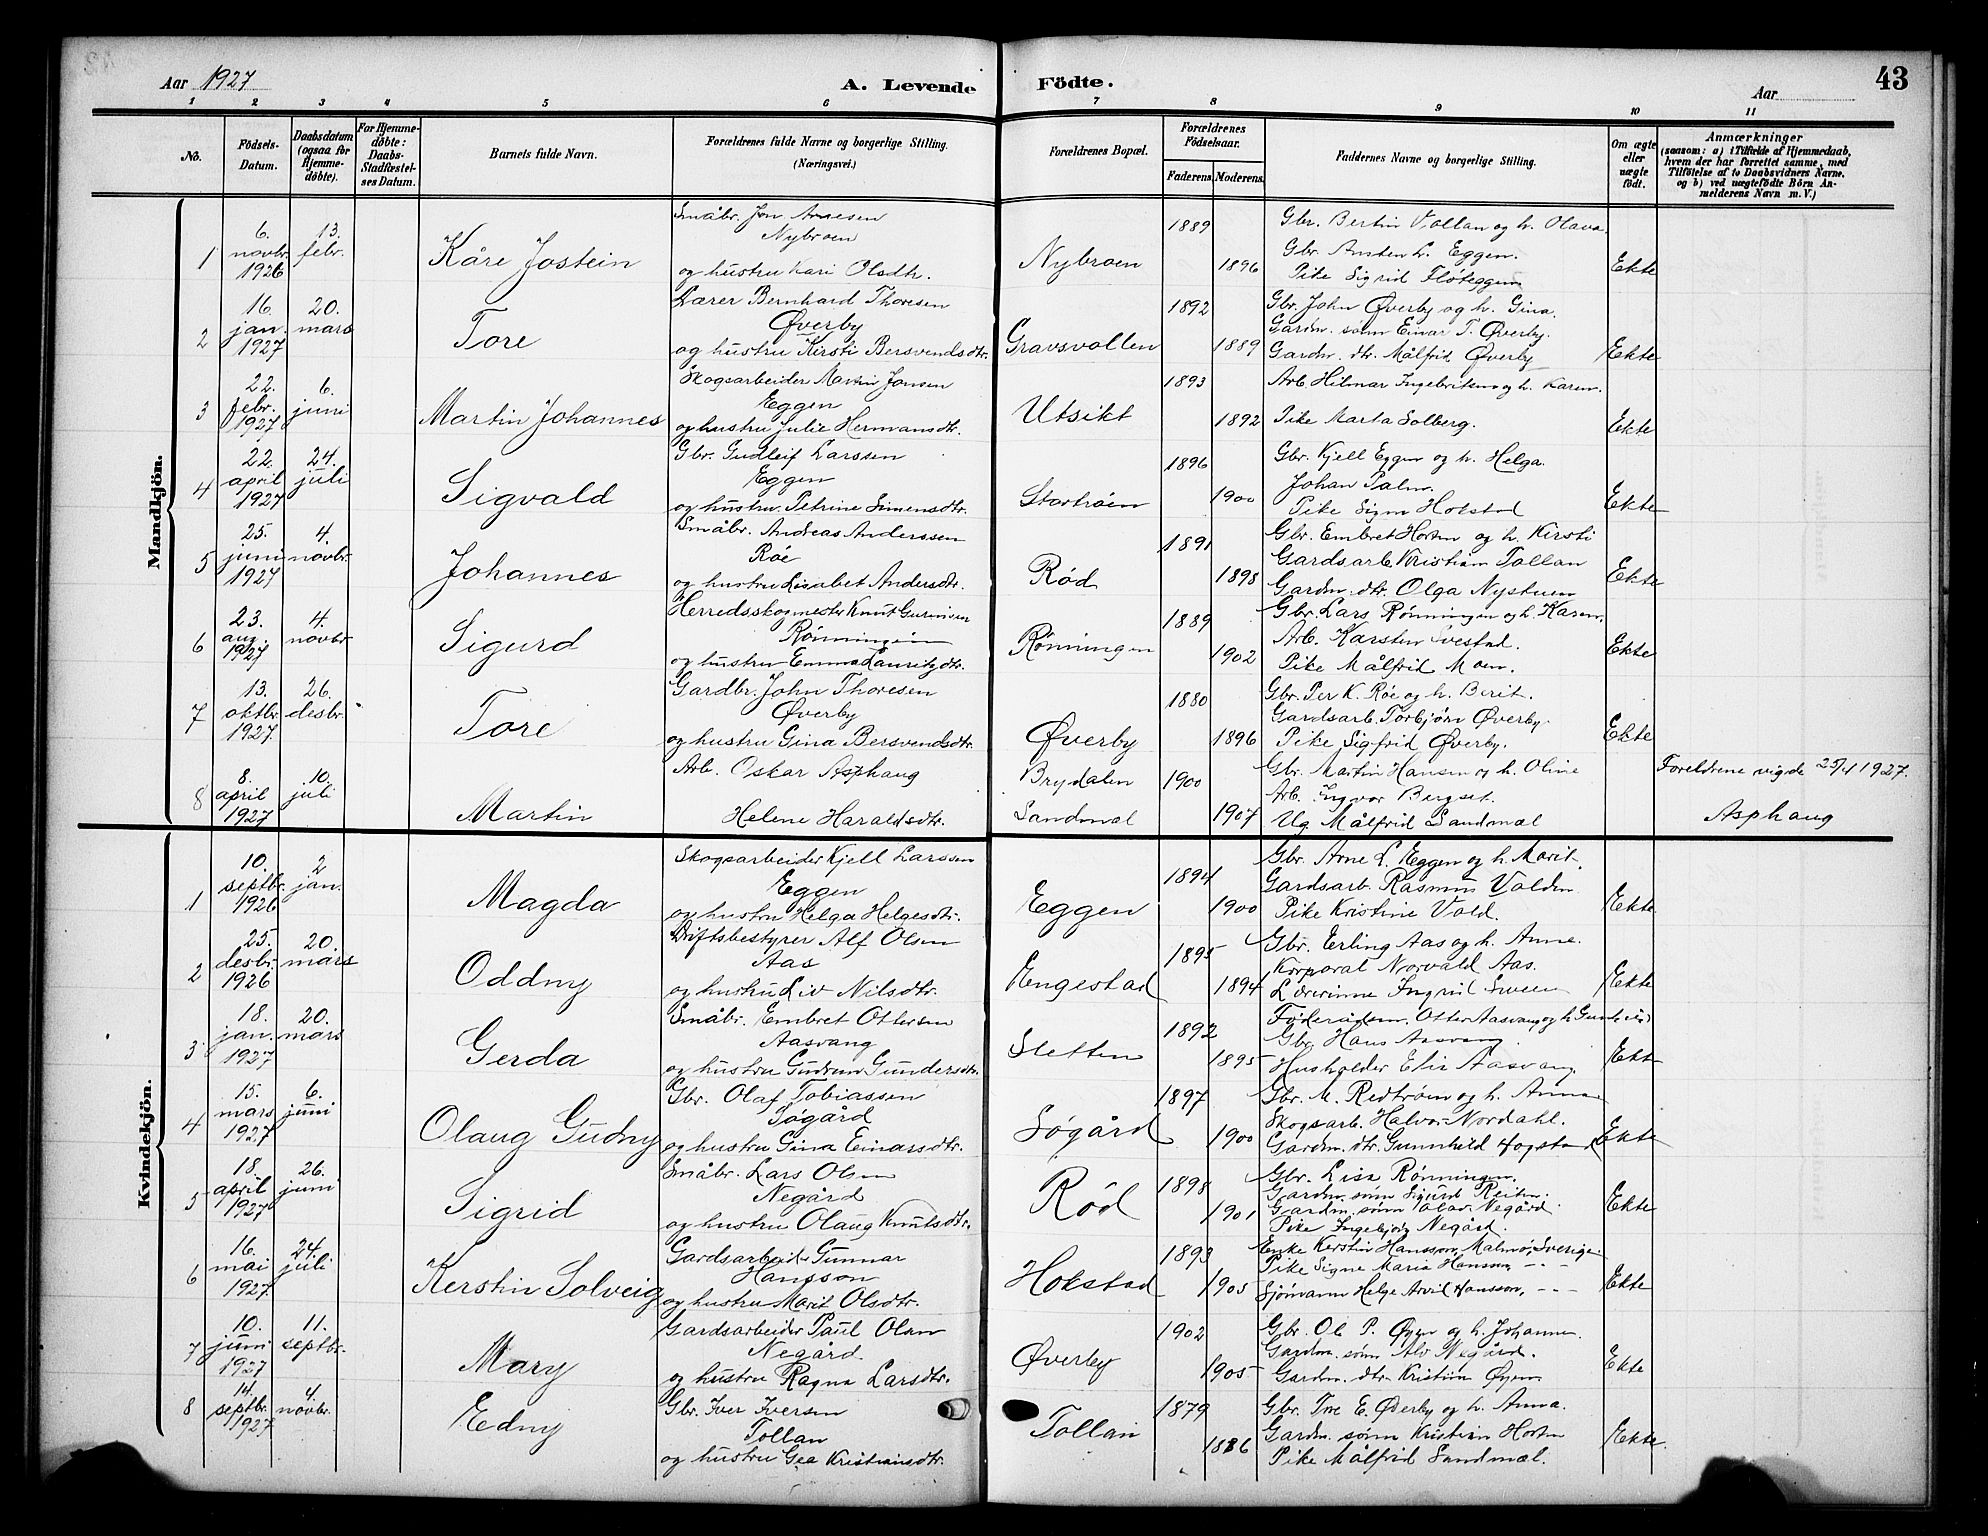 Aar 1927
A. Levende Födte.
Aar
43
1 2 3 4 5 6 7 8 9 10 11
No.
Födsels-Datum.
Daabsdatum (ogsaa for Hjemmedöbte).
For Hjemmedöbte: Daabs-Stadfæstelses Datum.
Barnets fulde Navn.
Forældrenes fulde Navne og borgerlige Stilling. (Næringsvei.)
Forældrenes Bopæl.
Forældrenes Födselsaar.
Faderens. Moderens.
Faddernes Navne og borgerlige Stilling.
Om ægte eller uægte födt.
Anmærkninger
(saasom: a) i Tilfælde af Hjemmedaab,
hvem der har forrettet samme, med
Tilföielse af to Daabsvidners Navne,
og b) ved uægtefödte Börn An-
melderens Navn m. V.)
Mandkjön.
1 6. novbr. 1926 13. febr. Kåre Jostein
Småbr. Jon Arnesen
Nybroen
og hustru Kari Olsdtr.
Nybroen 1889 1896
Gbr. Bertin Vollan og h. Olava.
Gbr. Ansten L. Eggen.
Pike Sigrid Fløteggen
Ekte
2 16. jan. 1927 20. mars Tore
Lærer Bernhard Thoresen
Øverby
og hustru Kirsti Bersvendsdtr.
Gravsvollen 1892 1889
Gbr. John Øverby og h. Gina.
Gardm. sønn Einar T. Øverby.
Gardm. dtr. Målfrid Øverby
Ekte
3 22. febr. 1927 6. juni Martin Johannes
Skogsarbeider Martin Jonsen
Eggen
og hustru Julie Hermansdtr.
Utsikt 1893 1892
Arb. Hilmar Ingebritsen og h. Karen.
Pike Marta Solberg.
Ekte
4 22. april 1927 24. juli Sigvald
Gbr. Gudleif Larssen
Eggen
og hustru Petrine Simensdtr.
Stortrøen 1896 1900
Gbr. Kjell Eggen og h. Helga.
Johan Palm.
Pike Signe Hokstad
Ekte
5 25. juni 1927 4. novbr. Johannes
Småbr. Andreas Anderssen
Røe
og hustru Lisabet Andersdtr.
Rød 1891 1898
Gbr. Embret Horten og h. Kirsti
Gardsarb. Kristian Tollan
Gardm. dtr. Olga Nystuen
Ekte
6 23. aug. 1927 4. novbr. Sigurd
Herredsskogmester Knut
Rønningen
og hustru Emma Lauritzdtr.
Rønningen 1889 1902
Gbr. Lars Rønningen og h. Karen.
Arb. Karsten Svestad.
Pike Målfrid Moen.
Ekte
7 13. oktbr. 1927. 26. desbr. Tore
Gardbr. John Thoresen
Øverby
og hustru Gina Bersvendsdtr.
Øverby 1880 1896
Gbr. Per K. Røe og h. Berit.
Gardsarb. Torbjørn Øverby.
Pike Sigfrid Øverby.
Ekte
8 8. april 1927 10. juli Martin
Arb. Oskar Asphaug
Helene Haraldsdtr.
Brydalen
Sandmæl
1900 1907
Gbr. Martin Hansen og h. Oline
Arb. Ingvar Bergset.
Ug. Målfrid Sandmæl
Foreldrene vigde 25/4 1927.
Asphaug
Kvindekjön.
1 10. septbr. 1926 2 jan. Magda
Skogsarbeider Kjell Larssen
Eggen
og hustru Helga Helgesdtr.
Eggen 1894 1900
Gbr. Arne L. Eggen og h. Marit.
Gardsarb. Rasmus Volden
Pike Kristine Vold.
Ekte
2 25. desbr. 1926 20. mars Oddny
Driftsbestyrer Alf Olsen
Aas
og hustru Liv Nilsdtr.
Engestad 1895 1894
Gbr. Erling Aas og h. Anne.
Korporal Norvald Aas.
Lærerinne Ingrid Sween
Ekte
3 18. jan. 1927 20. mars Gerda
Småbr. Embret Ottersen
Aasvang
og hustru Gudrun Gundersdtr.
Sletten 1892 1895
Føderådsm. Otter Aasvang og h.
Gbr. Hans Aasvang.
Husholder Elie Aasvang
Ekte
4 15. mars 1927 6. juni Olaug Gudny
Gbr. Olaf Tobiassen
Søgård
og hustru Gina Einarsdtr.
Søgård 1897 1900
Gbr. M. Redtrøen og h. Anna
Skogsarb. Halvor Nordahl.
Gardm. dtr. Gunnhild Hogstad
Ekte
5 18. april 1927 26. juni Sigrid
Småbr. Lars Olsen
Negård
og hustru Olaug Knutsdtr.
Rød 1898 1901
Gbr. Lisa Rønningen.
Gardm. sønn Sigurd Reiten.
Gardm. sønn Olav Negård.
Pike Ingebjørg Negård.
Ekte
6 16. mai 1927. 24. juli Kerstin Solveig
Gardsarbeider Gunnar
Hansson
og hustru Marit Olsdtr.
Hokstad 1893 1905
Enke Kerstin Hansson, Malmø, Sverige.
Pike Signe Maria Hansson, - " -
Sjømann Helge Arvid Hansson, - " -
Ekte
7 10. juni 1927 11. septbr. Mary
Gardsarbeider Paul Olsen
Negård.
og hustru Ragna Larsdtr.
Øverby 1902 1905
Gbr. Ole P. Øyen og h. Johanne.
Gardm. sønn Alv Negård.
Gardm. dtr. Kristine Øyen
Ekte
8 14. septbr. 1927 4. novbr. Edny
Gbr. Iver Iversen
Tollan
og hustru Gea Kristiansdtr.
Tollan 1879 1886
Gbr. Tore E. Øverby og h. Anna.
Gardm. sønn Kristian Horten
Pike Målfrid Sandmæl.
Ekte.